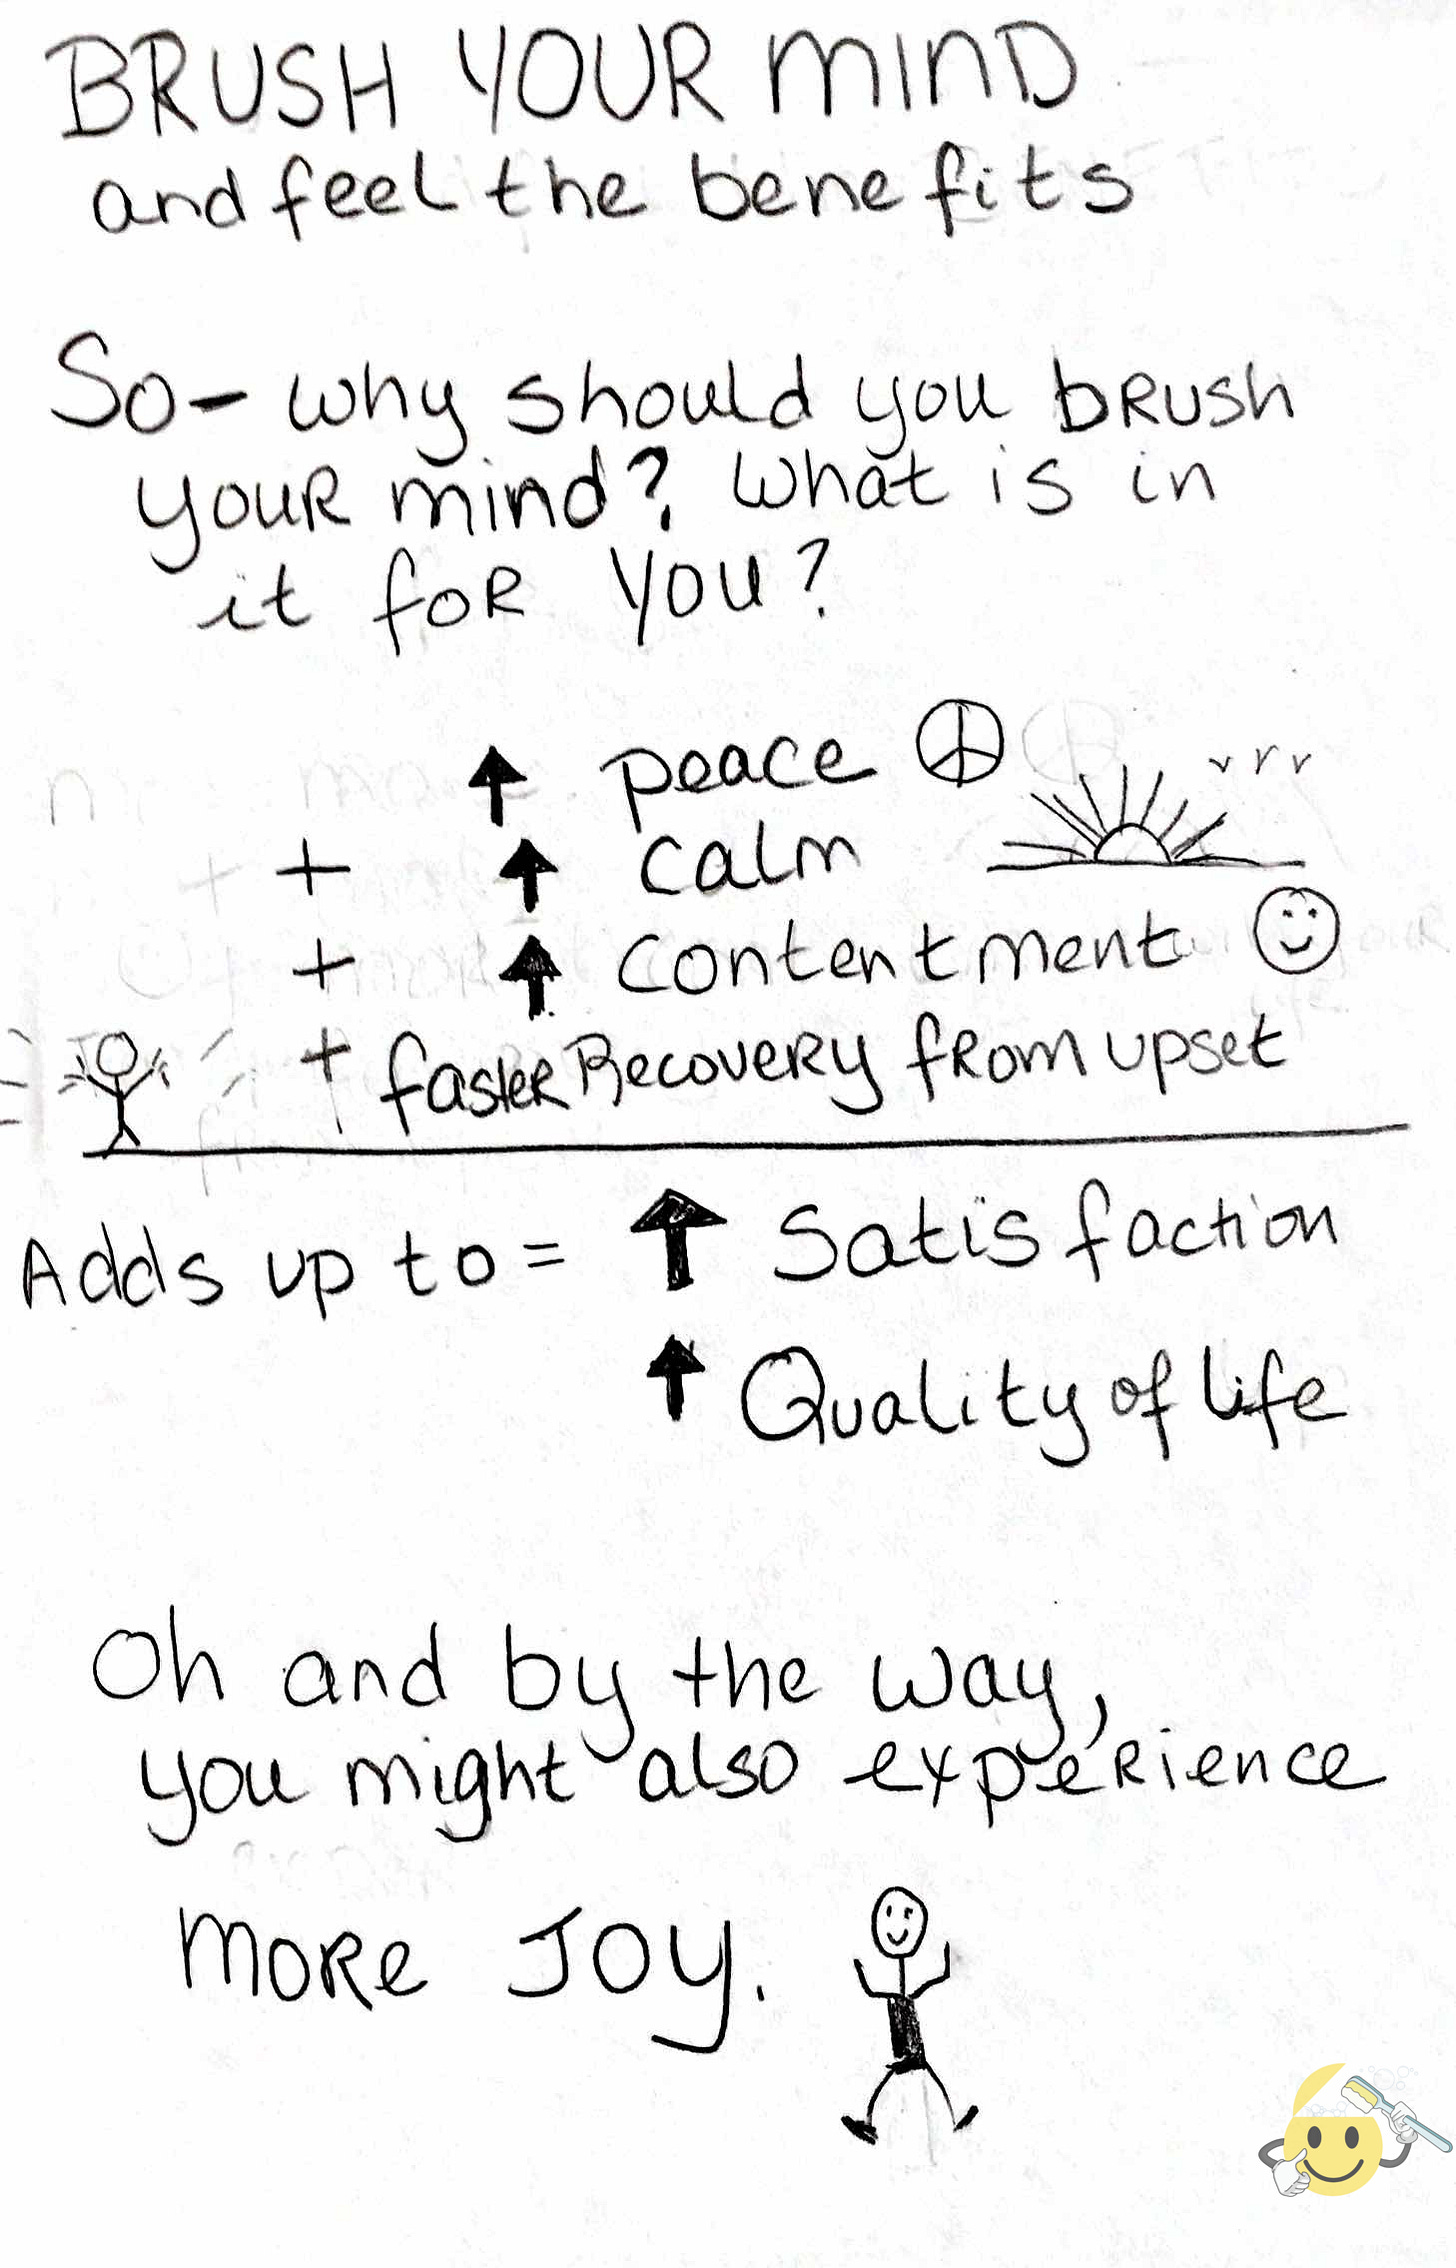 BRUSH YOUR MIND
and feel the benefits
So- why should you bRUSh
youR mind? What is in
it foR You?
↑ peace
+ ↑ calm
+ ↑ contentment
+ fasteR RecoveRy fRom upset
Adds up to = ↑ Satisfaction
↑ Quality of life
Oh and by the way,
you might also expeRience
moRe Joy.